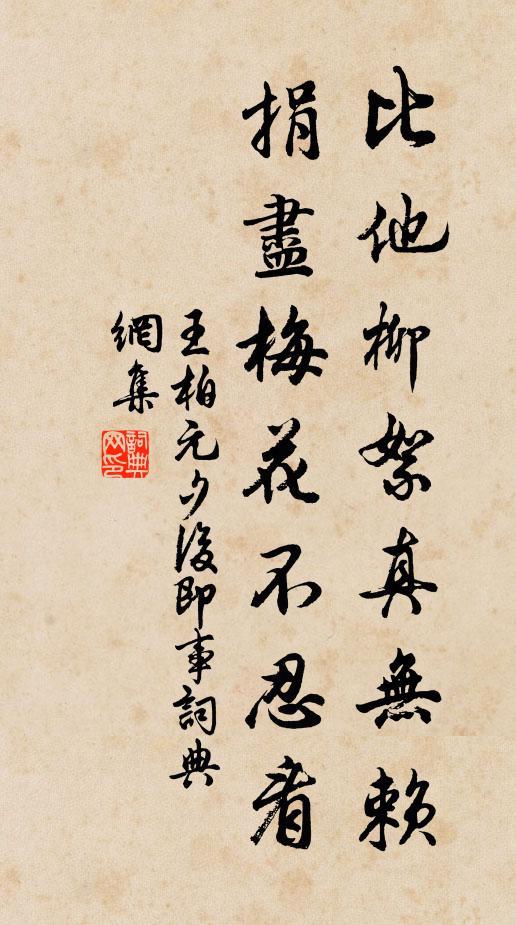 比他柳絮真無賴
捐盡梅花不忍看
王柏元夕後即事詞典
網集
詞典
网印